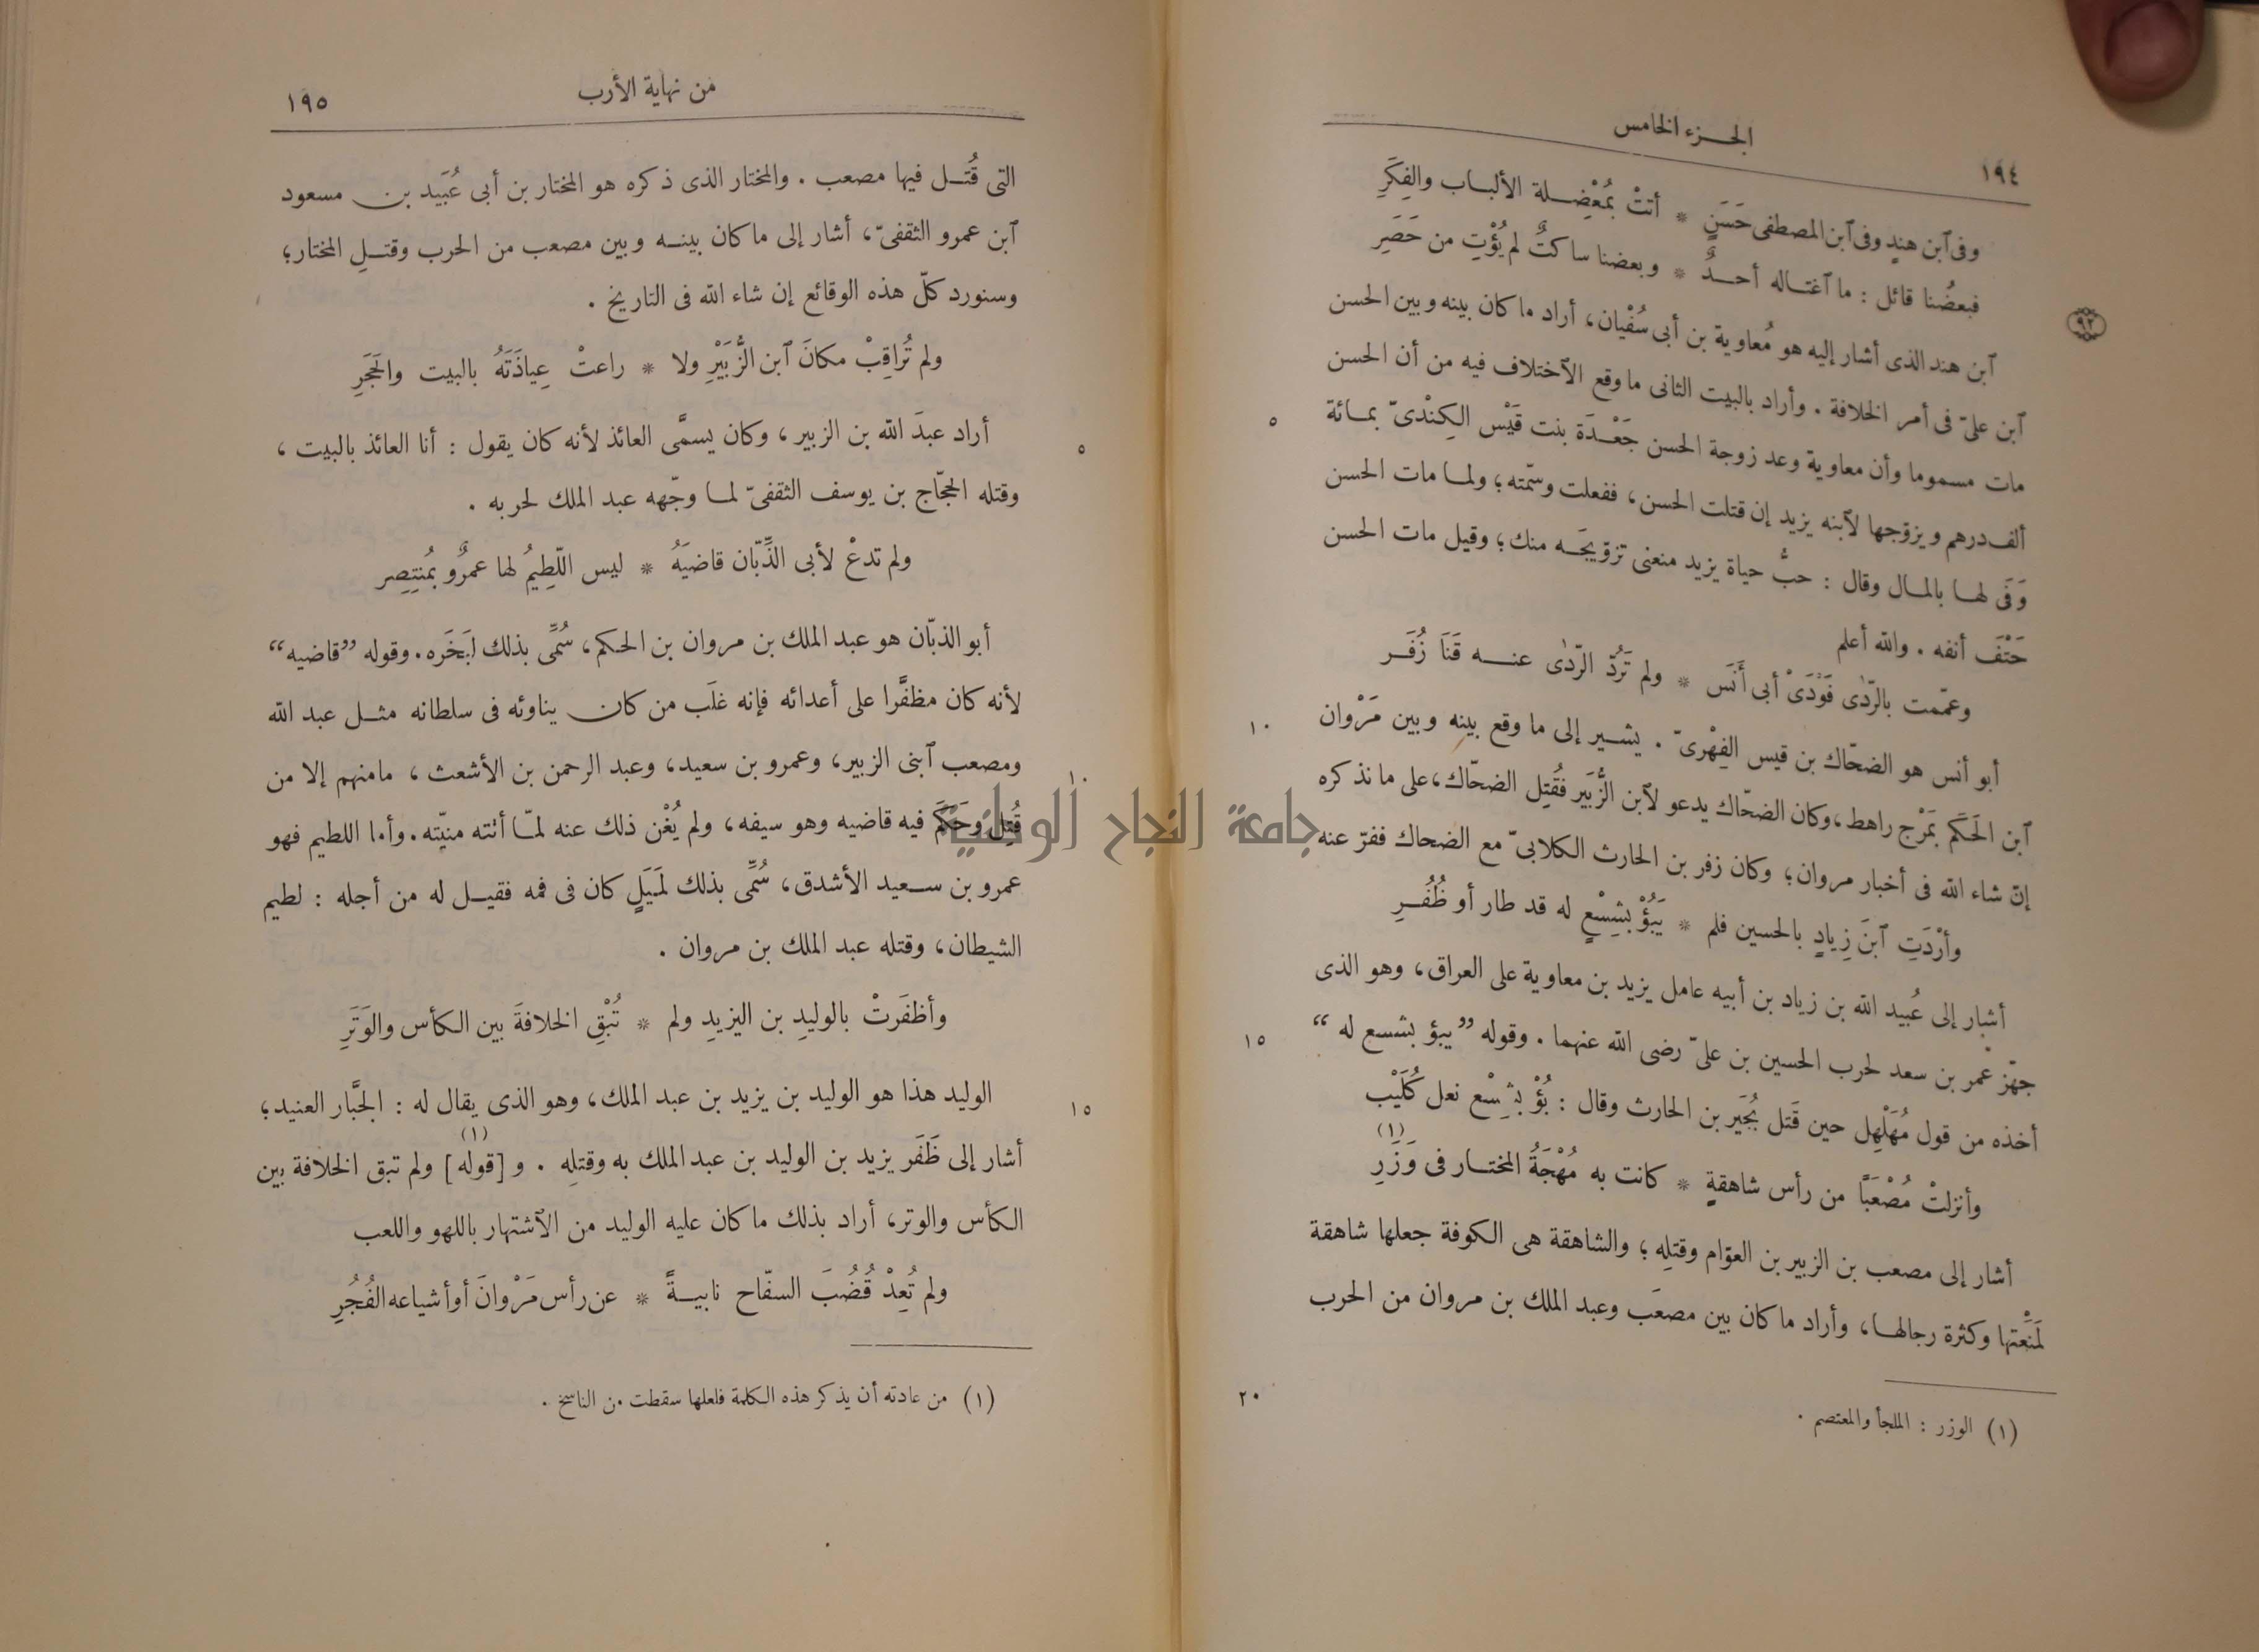 ١٩٤
الجزء الخامس
وفى ٱبن هندٍ وفى ٱبن المصطفى حَسَنٍ * أتتْ بمُعْضِلة الألباب والفِكَرِ
فبعضُنا قائل : ما ٱغتاله أحدٌ * وبعضنا ساكتٌ لم يُؤْتِ من حَصَرِ
٩٢
ٱبن هند الذى أشار إليه هو مُعاوية بن أبى سُفْيان، أراد ما كان بينه وبين الحسن
ٱبن علىّ فى أمر الخلافة . وأراد بالبيت الثانى ما وقع الٱختلاف فيه من أن الحسن
مات مسموما وأن معاوية وعد زوجة الحسن جَعْدَة بنت قَيْس الكِنْدىّ بمائة
٥
ألف درهم ويزوّجها لٱبنه يزيد إن قتلت الحسن، ففعلت وسمّته؛ ولما مات الحسن
وَفَى لها بالمال وقال : حبُّ حياة يزيد منعنى تزويجَه منك؛ وقيل مات الحسن
حَتْفَ أنفه . والله أعلم
وعمّمت بالرّدٰى فَوْدَىْ أبى أَنَس * ولم تَرُدّ الرّدٰى عنه قَنَا زُفَر
أبو أنس هو الضحّاك بن قيس الفِهْرىّ . يشير إلى ما وقع بينه وبين مَرْوان
١٠
ٱبن الحَكَم بمَرْج راهط، وكان الضحّاك يدعو لٱبن الزُّبَير فقُتِل الضحّاك، على ما نذكره
إن شاء الله فى أخبار مروان؛ وكان زفر بن الحارث الكلابىّ مع الضحاك ففرّ عنه
وأرْدَتِ ٱبنَ زِيادٍ بالحسين فلم * يَبُؤْ بشِسْعٍ له قد طار أو ظُفُرِ
أشار إلى عُبيد الله بن زياد بن أبيه عامل يزيد بن معاوية على العراق، وهو الذى
جهّز عمر بن سعد لحرب الحسين بن علىّ رضى الله عنهما . وقوله ”يبؤ بشسع له“
١٥
أخذه من قول مُهَلْهِل حين قَتل بُجَير بن الحارث وقال : بُؤْ بشِسْع نعل كُلَيْب
وأنزلتْ مُصْعَبًا من رأس شاهقةٍ * كانت به مُهْجَةُ المختار فى وَزَرِ (١)
أشار إلى مصعب بن الزبير بن العوّام وقتلِه؛ والشاهقة هى الكوفة جعلها شاهقة
لمَنَعتها وكثرة رجالها، وأراد ما كان بين مصعَب وعبد الملك بن مروان من الحرب
(١) الوزر : الملجأ والمعتصم .
٢٠
من نهاية الأرب
١٩٥
التى قُتل فيها مصعب . والمختار الذى ذكره هو المختار بن أبى عُبَيد بن مسعود
ٱبن عمرو الثقفىّ، أشار إلى ما كان بينه وبين مصعب من الحرب وقتلِ المختار؛
وسنورد كلّ هذه الوقائع إن شاء الله فى التاريخ .
ولم تُراقِبْ مكانَ ٱبن الزُّبَيْرِ ولا * راعتْ عِياذَتَهُ بالبيت والحَجَرِ
أراد عبدَ الله بن الزبير ، وكان يسمَّى العائذ لأنه كان يقول : أنا العائذ بالبيت ،
٥
وقتله الحجّاج بن يوسف الثقفىّ لما وجّهه عبد الملك لحربه .
ولم تدعْ لأبى الذِّبّان قاضيَهُ * ليس اللّطِيمُ لها عمرٌو بمُنتِصِر
أبو الذبّان هو عبد الملك بن مروان بن الحكم، سُمِّى بذلك لبَخَره. وقوله ”قاضيه“
لأنه كان مظفَّرا على أعدائه فإنه غلَب من كان يناوئه فى سلطانه مثل عبد الله
ومصعب ٱبنى الزبير، وعمرو بن سعيد، وعبد الرحمن بن الأشعث ، ما منهم إلا من
١٠
قُتِل وحَكَم فيه قاضيه وهو سيفه، ولم يُغْن ذلك عنه لمّا أتته منيّته. وأما اللطيم فهو
جامعة النجاح الوطنية
عمرو بن سعيد الأشدق، سُمِّى بذلك لمَيَلٍ كان فى فمه فقيل له من أجله : لطيم
الشيطان، وقتله عبد الملك بن مروان .
وأظفَرتْ بالوليدِ بن اليزيدِ ولم * تُبْقِ الخلافةَ بين الكأس والوَتَرِ
الوليد هذا هو الوليد بن يزيد بن عبد الملك، وهو الذى يقال له : الجبَّار العنيد؛
١٥
أشار إلى ظَفَر يزيد بن الوليد بن عبد الملك به وقتلِه . و [قوله] (١) ولم تبق الخلافة بين
الكأس والوتر، أراد بذلك ما كان عليه الوليد من الٱشتهار باللهو واللعب
ولم تُعِدْ قُضُبَ السفّاح نابيةً * عن رأس مَرْوانَ أو أشياعه الفُجُرِ
(١) من عادته أن يذكر هذه الكلمة فلعلها سقطت من الناسخ .